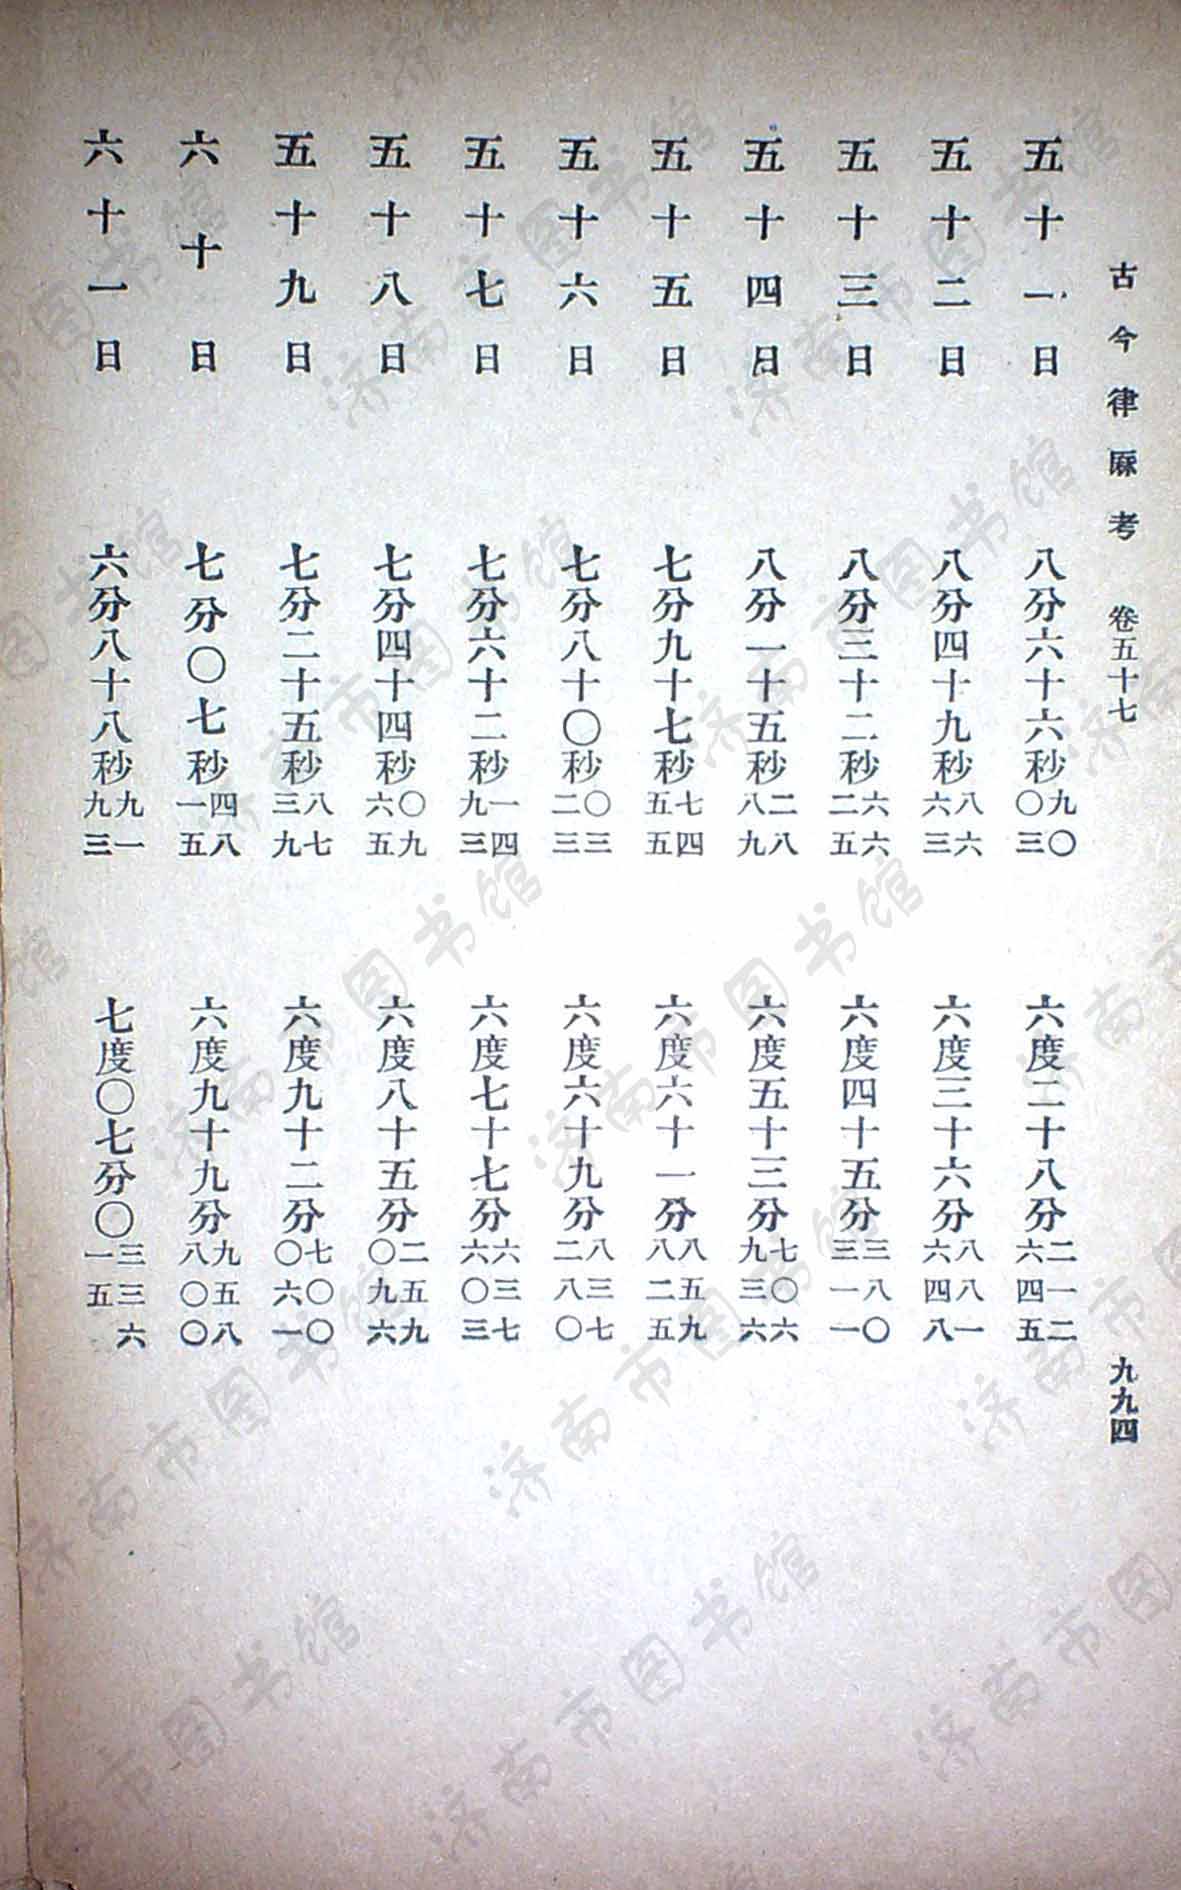 古今律厤考 卷五十七 九九四
五十一日 八分六十六秒九〇〇三 六度二十八分二一二六四五
五十二日 八分四十九秒八六六三 六度三十六分八八一六四八
五十三日 八分三十二秒六六二五 六度四十五分三八〇三一一
五十四日 八分一十五秒二八八九 六度五十三分七〇六九三六
五十五日 七分九十七秒七四五五 六度六十一分八五九八二五
五十六日 七分八十〇秒〇三二三 六度六十九分八三七二八〇
五十七日 七分六十二秒一四九三 六度七十七分六三七六〇三
五十八日 七分四十四秒〇九六五 六度八十五分二五九〇九六
五十九日 七分二十五秒八七三九 六度九十二分七〇〇〇六一
六十日 七分〇七秒四八一五 六度九十九分九五八八〇〇
六十一日 六分八十八秒九一九三 七度〇七分〇三三六一五
济南市图书馆